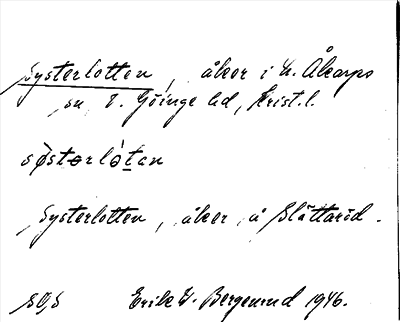 Systerlotten, åker i N. Åkarps
sn V. Göinge hd, Krist. l.
søstərlòtan
Systerlotten, åker å Slättaröd.
Erik W. Bergmund 1946.